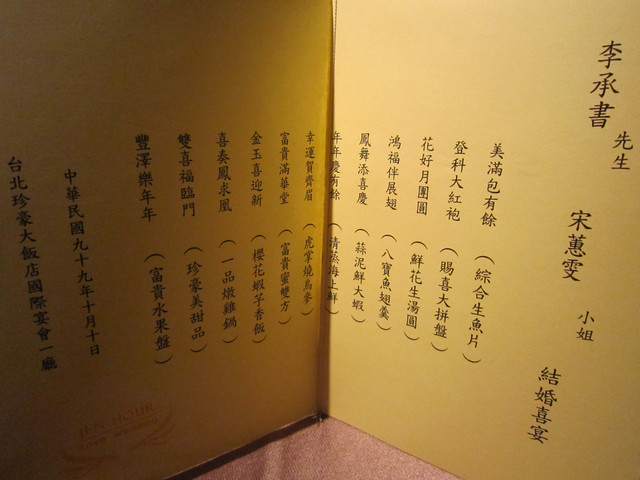 李承書 先生 宋蕙雯 小姐 結婚喜宴
美滿包有餘 (綜合生魚片)
登科大紅袍 (賜喜大拼盤)
花好月團圓 (鮮花生湯圓)
鴻福伴展翅 (八寶魚翅羹)
鳳舞添喜慶 (蒜泥鮮大蝦)
年年慶有餘 (清蒸海上鮮)
幸運賀齊眉 (虎掌燒烏參)
富貴滿華堂 (富貴蜜雙方)
金玉喜迎新 (櫻花蝦芋香飯)
喜奏鳳求凰 (一品燉雞鍋)
雙喜福臨門 (珍豪美甜品)
豐澤樂年年 (富貴水果盤)
中華民國九十九年十月十日
台北珍豪大飯店國際宴會一廳